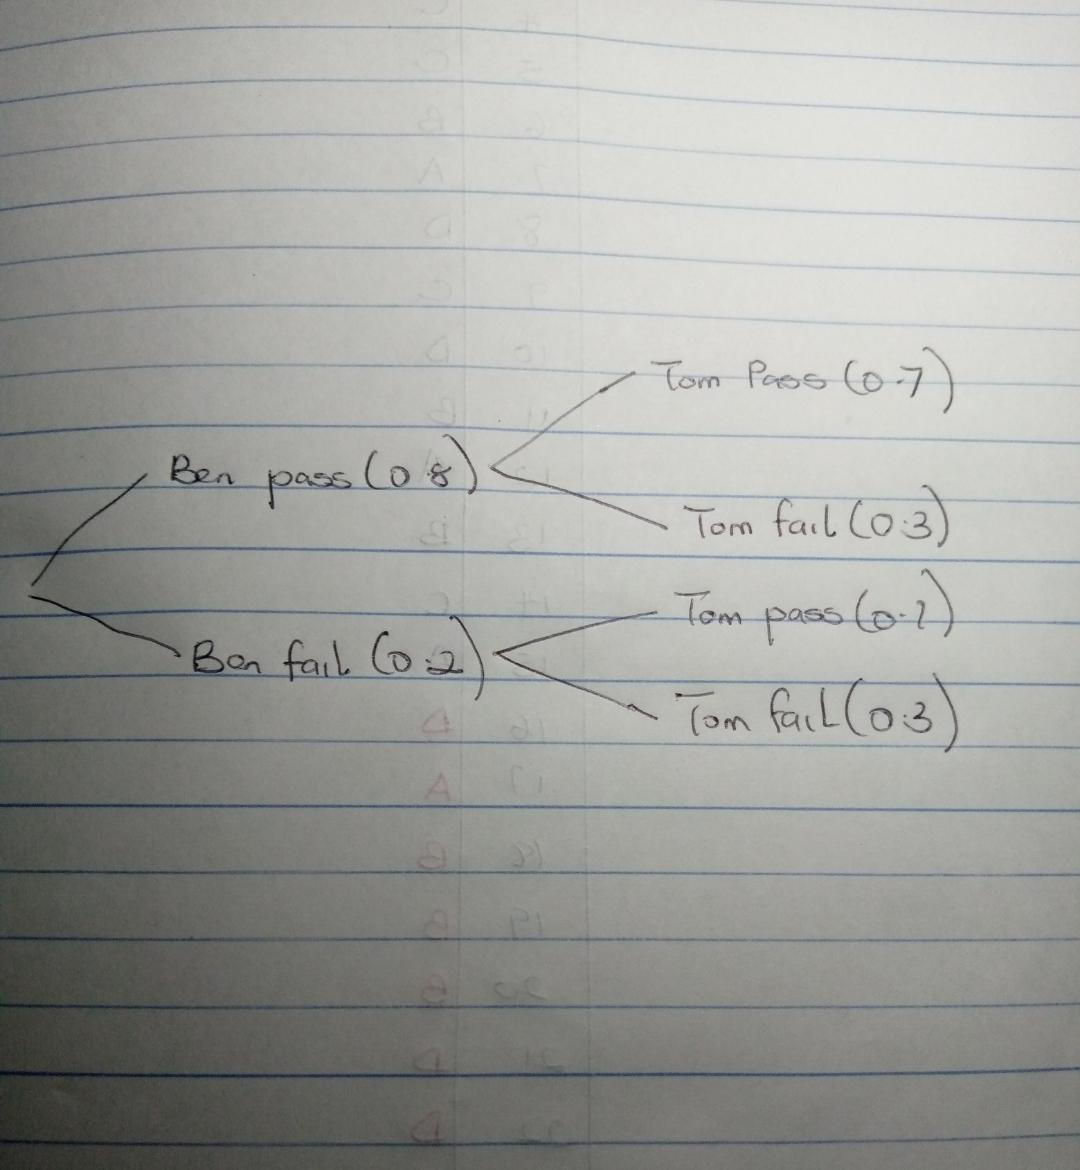 Tom Pass (0.7)
Ben pass (0.8)
Tom fail (0.3)
Tom pass (0.7)
Ben fail (0.2)
Tom fail (0.3)